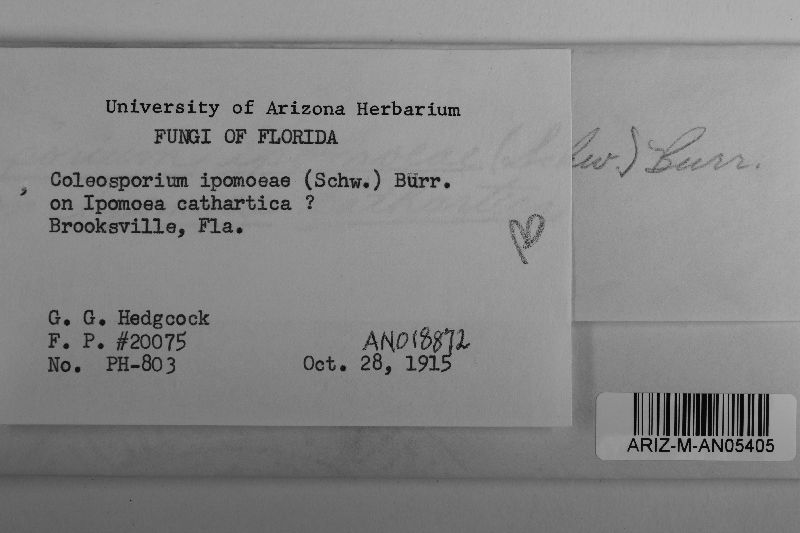 University of Arizona Herbarium
FUNGI OF FLORIDA
Coleosporium ipomoeae (Schw.) Burr.
on Ipomoea cathartica ?
Brooksville, Fla.
G. G. Hedgcock
F. P. #20075
No. PH-803
AN018872
Oct. 28, 1915
Burr.
ARIZ-M-AN05405